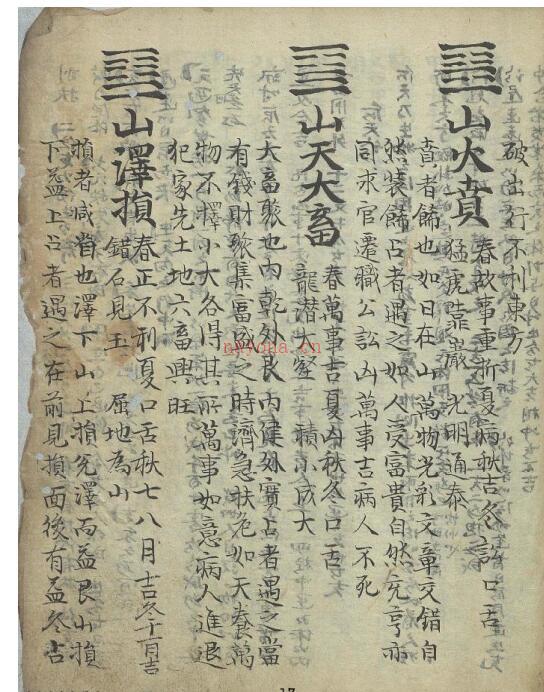 破出行不利東方
山火賁 春故事重新夏病秋吉冬訟口舌
猛虎靠巖 光明通泰
賁者餙也如日在山萬物光彩文章交錯自
然裝餙占者遇之如人受富貴自然亮亨亦
同求官遷職公訟凶萬事吉病人不死
山天大畜 春萬事吉夏凶秋冬口舌
龍潛大壑 積小成大
大畜聚也内乾外艮内健外實占者遇之富
有錢財聚集富盛之時濟急扶危如天養萬
物不擇小大各得其所萬事如意病人進退
犯家先土地六畜興旺
山澤損 春正不利夏口舌秋七八月吉冬十一月吉
錯石見玉 屈地為山
損者減省也澤下山上損兌澤而益艮山損
下益上占者遇之在前見損而後有益冬占
nayona.cn
17